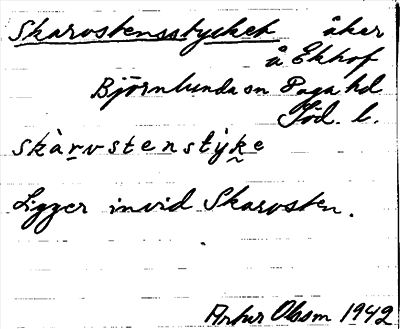 Skarvstensstycket åker
å Ekhof
Björnlunda sn Daga hd
Söd. l.
skàrvstenstyke
Ligger invid Skarvsten.
Artur Olsson 1942